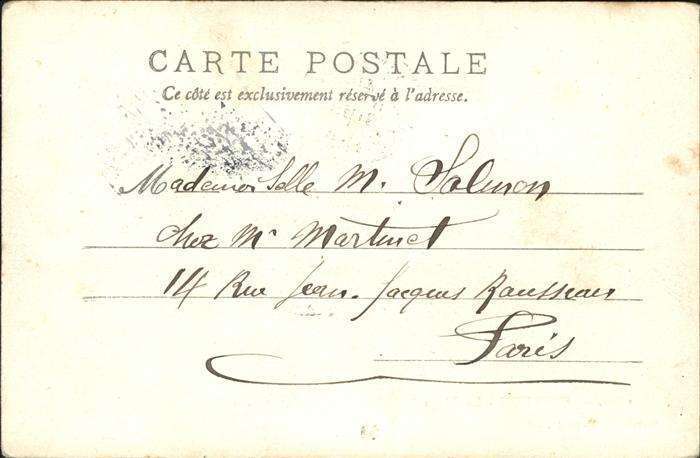 CARTE POSTALE
Ce côté est exclusivement réservé à l'adresse.
Mademoiselle M. Salmon
chez Mr Martinet
14 Rue Jean-Jacques Rousseau
Paris